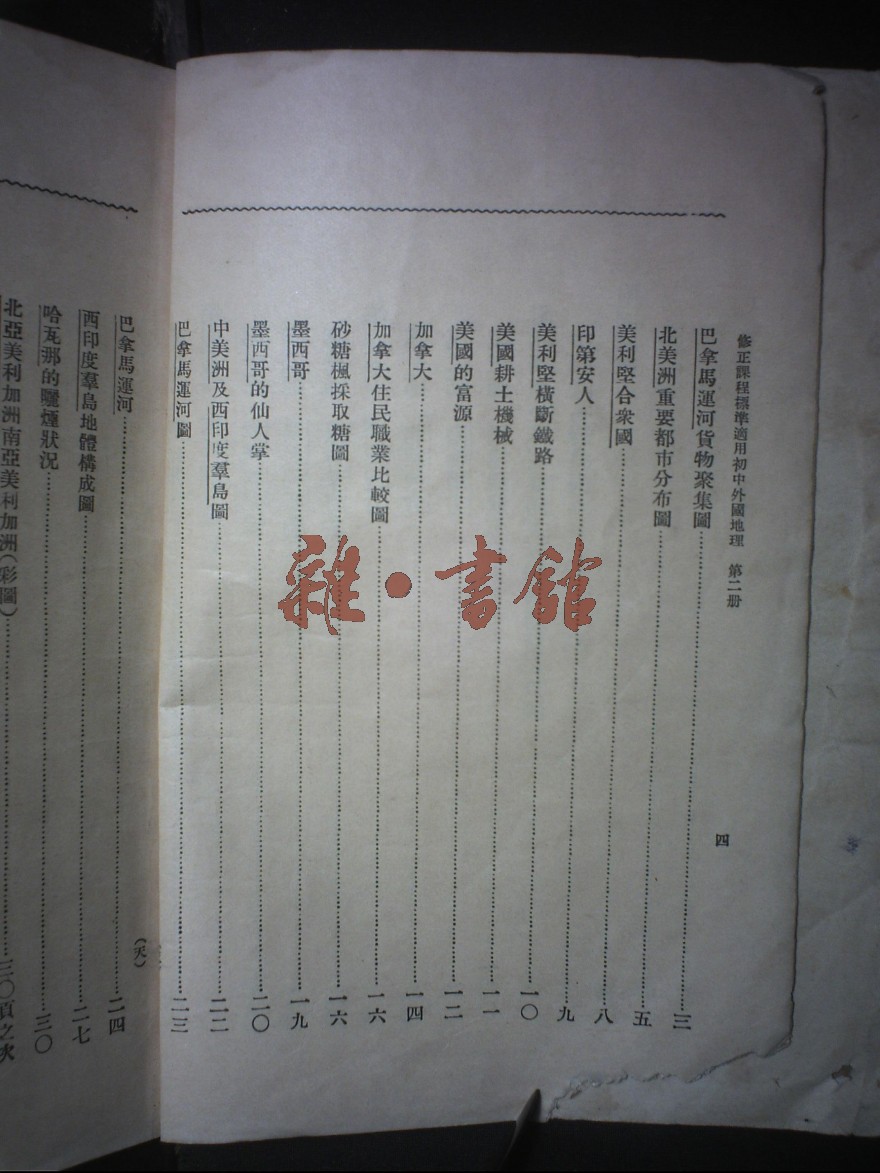 修正課程標準適用初中外國地理 第二册
四
巴拿馬運河貨物聚集圖 三
北美洲重要都市分布圖 五
美利堅合衆國 八
印第安人 九
美利堅橫斷鐵路 一〇
美國耕土機械 一一
美國的富源 一二
加拿大 一四
加拿大住民職業比較圖 一六
砂糖楓採取糖圖 一六
墨西哥 一九
墨西哥的仙人掌 二〇
中美洲及西印度羣島圖 二二
巴拿馬運河圖 二三
巴拿馬運河 二四
西印度羣島地體構成圖 二七
哈瓦那的曬煙狀況 三〇
北亞美利加洲南亞美利加洲(彩圖) 三〇頁之次
雜·書館